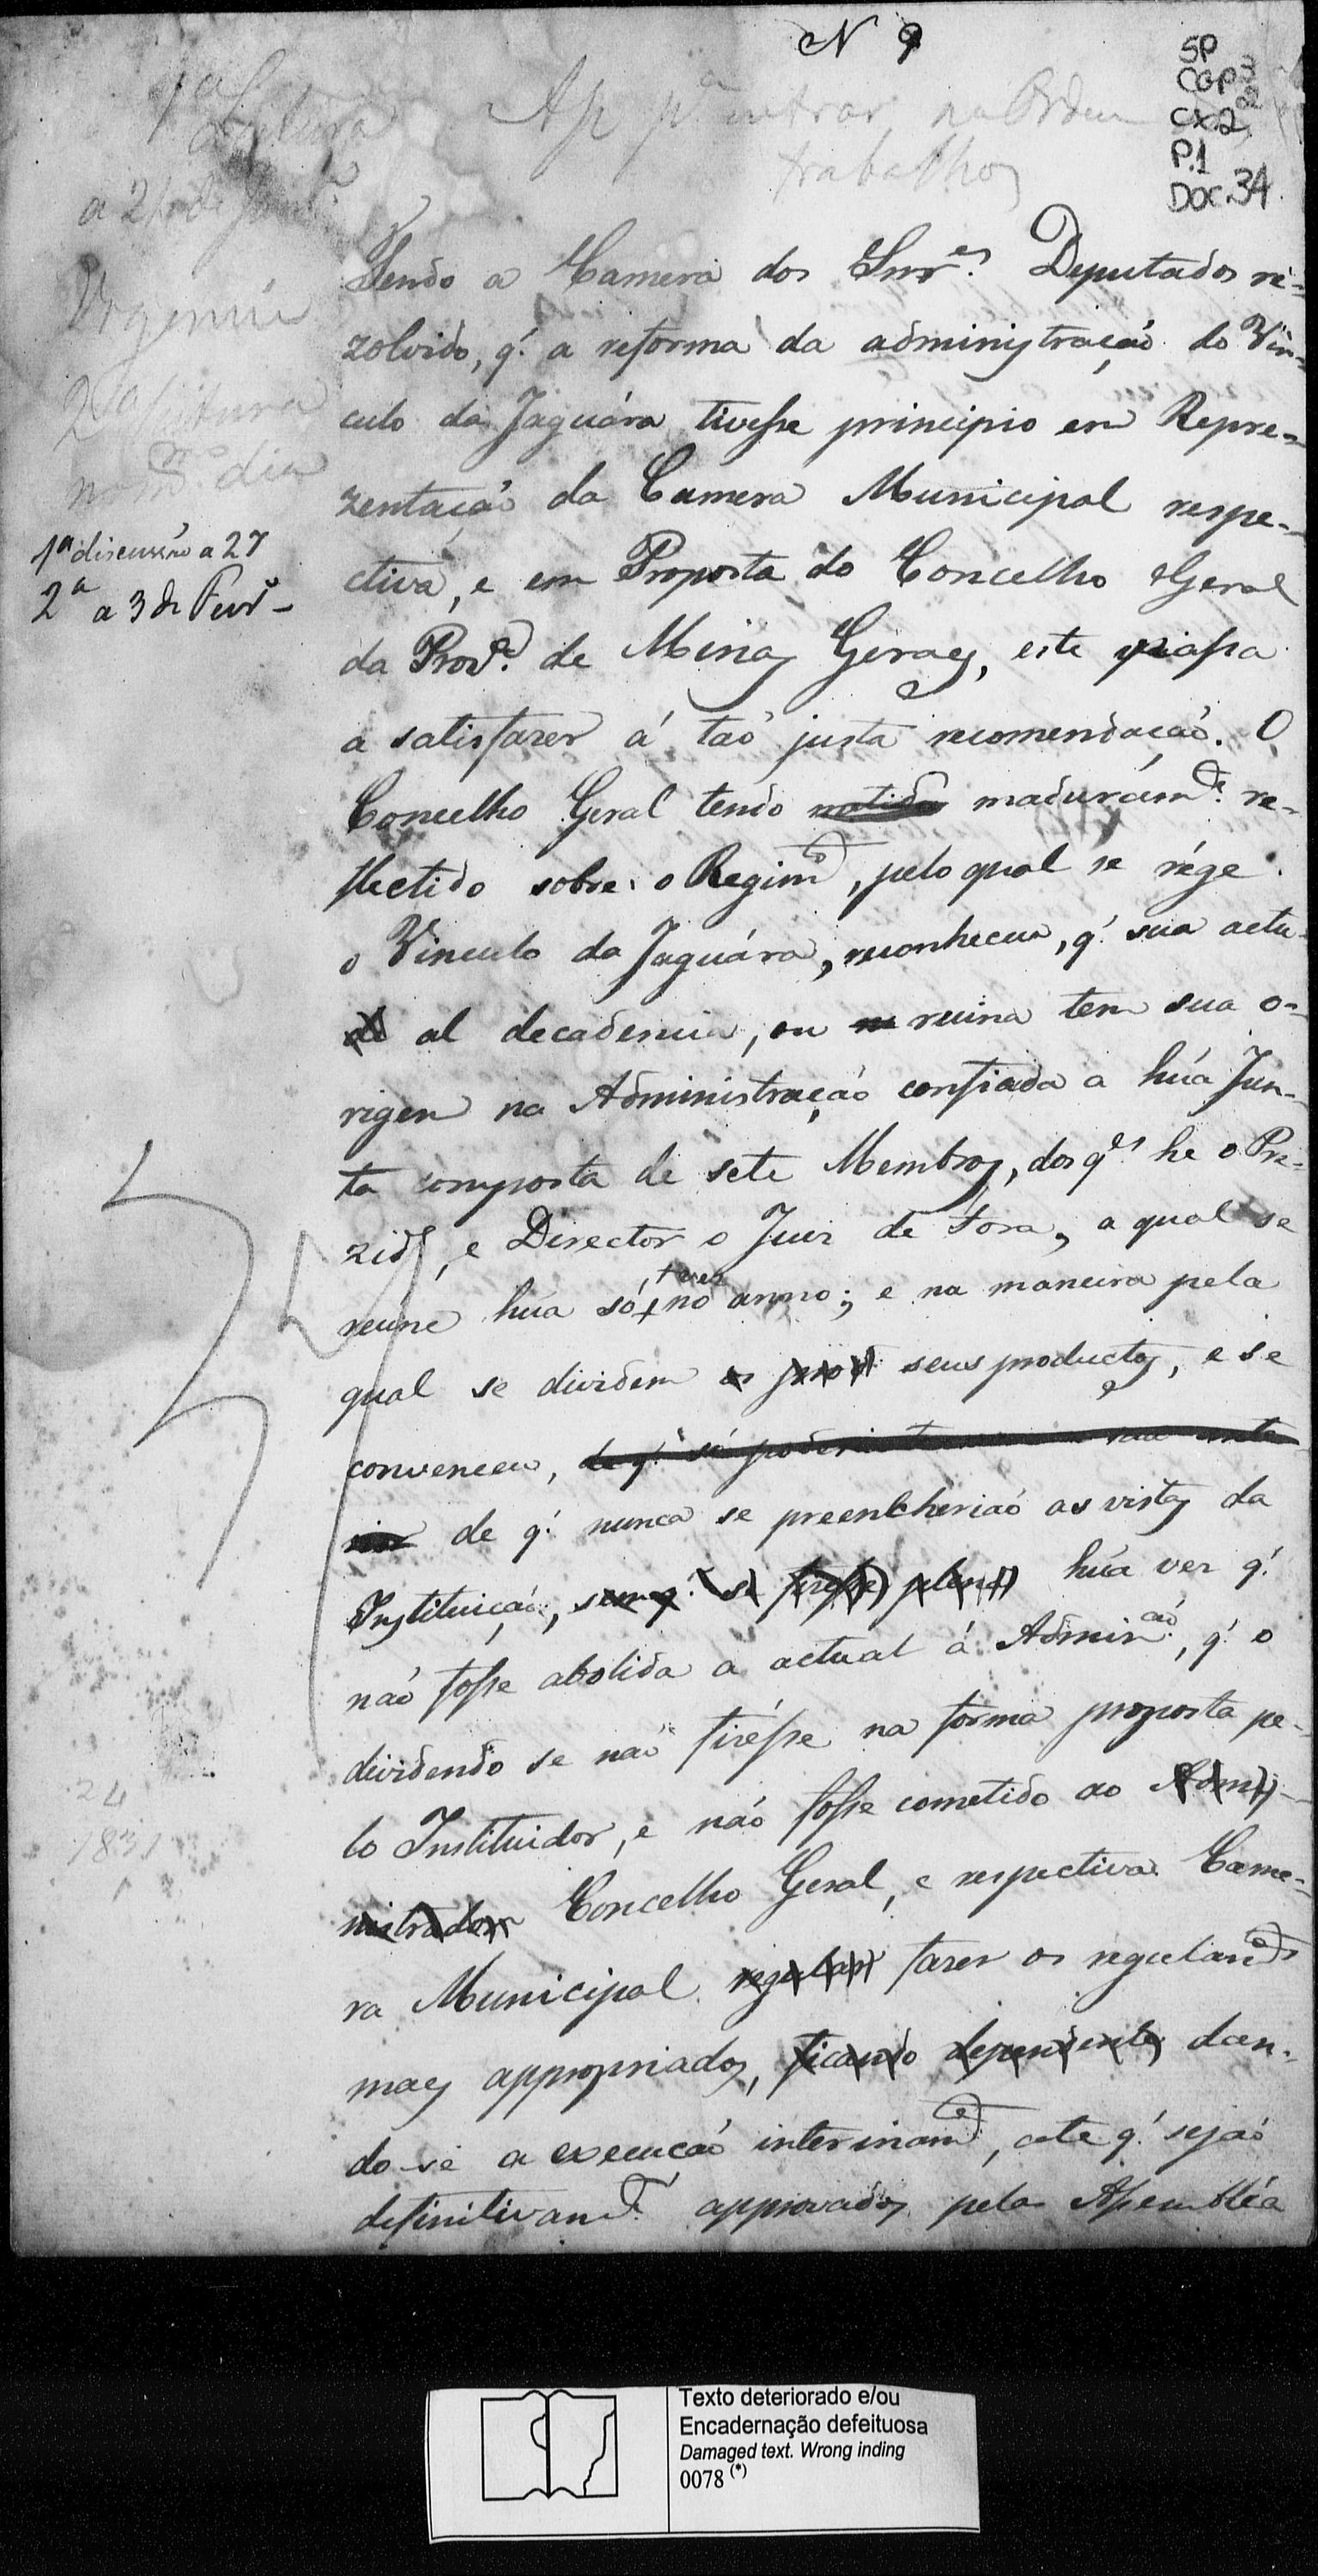 N 9
SP
CGP 3
Cx. 2
P.1
DOC. 34
1ª Leitura
a 24 de Janrº
Urgencia
2ª Leitura
no mmo dia
1ª discussão a 27
2ª a 3 de Fevrº
Ap pª entrar na Ordem
trabalhos
Tendo a Camera dos Snres. Deputados re-
zolvido, q' a reforma da administração do Vin-
culo da Jaguára tivesse principio em Repre-
zentação da Camera Municipal respe-
ctiva, e em Proposta do Concelho Geral
da Provª. de Minas Geraes, este passa
a satisfazer á tão justa recomendação. O
Concelho Geral tendo madurámte. re-
flectido sobre o Regimto, pelo qual se rége
o Vinculo da Jaguára, reconheceu, q' sua actu-
al decadencia, ou ruina tem sua o-
rigem na Administração confiada a húa Jun-
ta composta de sete Membros, dos qes he o Pre-
zide, e Director o Juiz de Fora, a qual se
reune húa só vez no anno; e na maneira pela
qual se dividem os seus productos, e se
convenceu, de q' só poderia
de q' nunca se preencherião as vistas da
Instituição, sem q' se fizesse húa vez q'
não fosse abolida a actual á Adminção, q' o
dividendo se não fizésse na forma proposta pe-
lo Instituidor, e não fosse cometido ao Admi-
nistrador Concelho Geral, e respectiva Came-
ra Municipal regular fazer os regulamtos
mais appropriados, ficando dependente dan-
do-se a execução interinamte, ate q' sejão
definitivamte. approvados pela Assembléa
24
1831
Texto deteriorado e/ou
Encadernação defeituosa
Damaged text. Wrong inding
0078 (*)